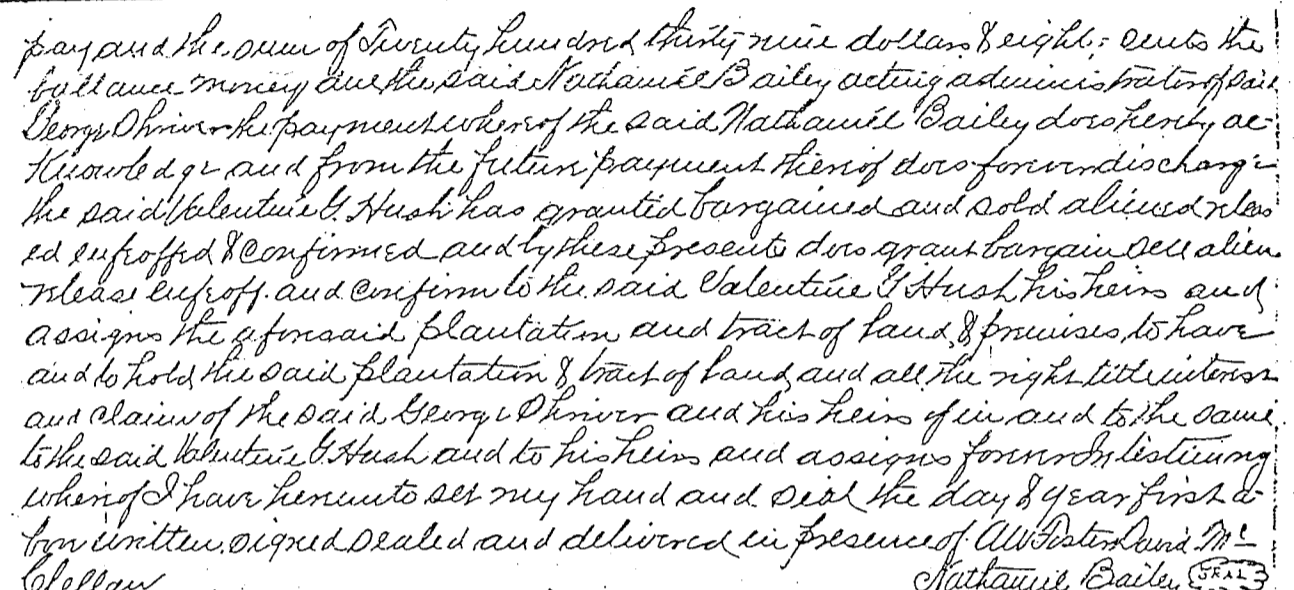 pay and the sum of Twenty hundred thirty nine dollars & eight: cents the
ballance money due the said Nathaniel Bailey acting administrator of said
George Shriver the payment whereof the said Nathaniel Bailey does hereby ac-
knowledge and from the future payment thereof does forever discharge
the said Valentine G. Hush has granted bargained and sold aliened releas
ed enfeoffed & confirmed and by these presents does grant bargain sell alien
release enfeoff. and confirm to the said Valentine G Hush his heirs and
assigns the aforesaid plantation and tract of land & premises, to have
and to hold the said plantation & tract of land, and all the right title interest
and claim of the said George Shriver and his heirs of in and to the same
to the said Valentine G. Hush and to his heirs and assigns forever In testimony
whereof I have hereunto set my hand and seal the day & year first a-
bove written. signed sealed and delivered in presence of. AW Foster David Mc
Clellan Nathaniel Bailey SEAL